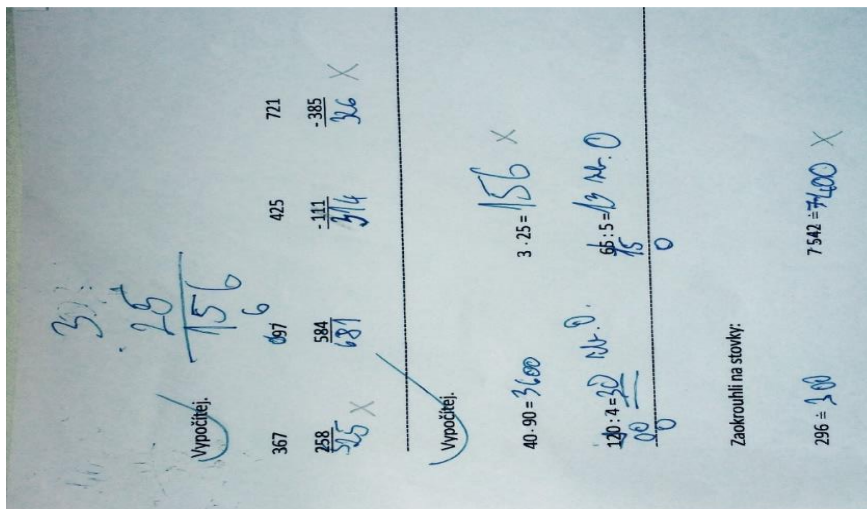 3
. 25
156
6
Vypočítej.
367 097 425 721
258 584 -111 -385
525 X 681 314 326 X
Vypočítej.
40 · 90 = 3600 3 · 25 = 156 X
120 : 4 = 30 zb. 0. 65 : 5 = 13 zb. 0
00 15
0 0
Zaokrouhli na stovky:
296 ≐ 300 7 542 ≐ 7400 X